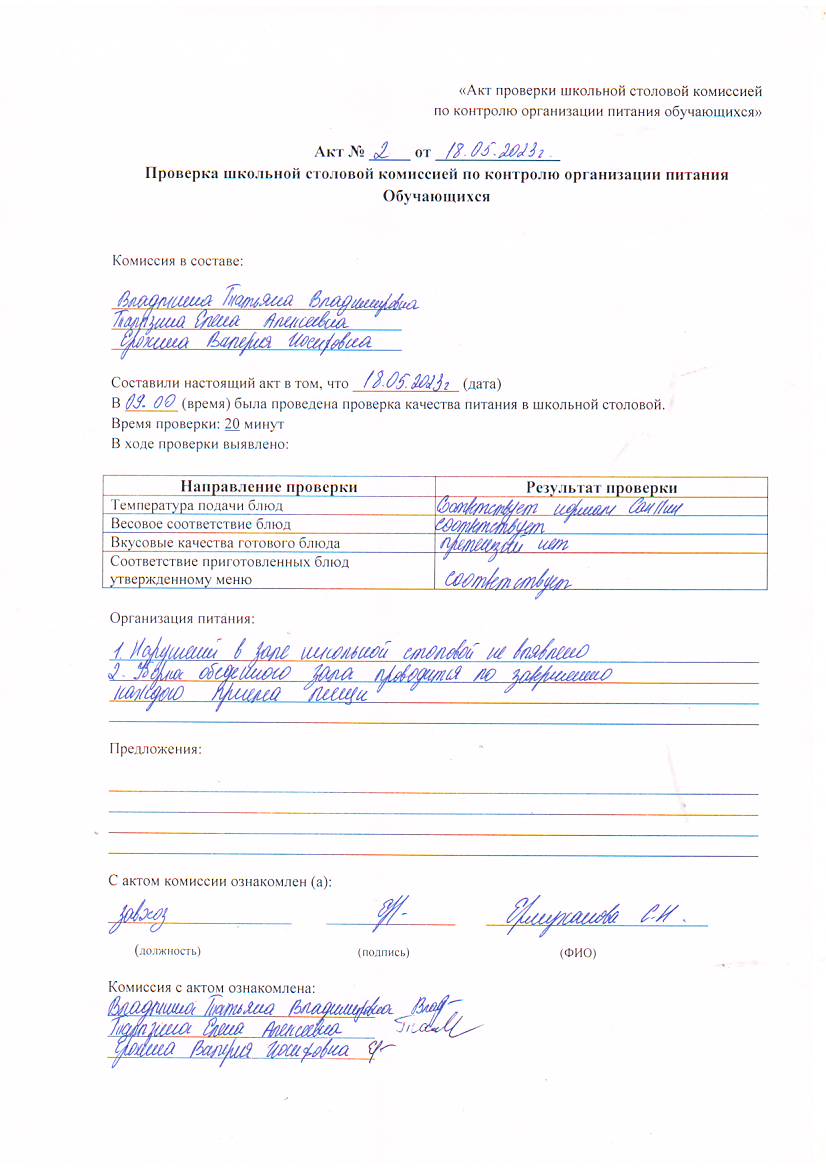 «Акт проверки школьной столовой комиссией
по контролю организации питания обучающихся»
Акт № 2 от 18.05.2023г.
Проверка школьной столовой комиссией по контролю организации питания
Обучающихся
Комиссия в составе:
Татьяна Владимировна
Елена Алексеевна
Ерохина Валерия Иосифовна
Составили настоящий акт в том, что 18.05.2023г (дата)
В 09.00 (время) была проведена проверка качества питания в школьной столовой.
Время проверки: 20 минут
В ходе проверки выявлено:
Направление проверки Результат проверки
Температура подачи блюд Соответствует нормам СанПин
Весовое соответствие блюд соответствует
Вкусовые качества готового блюда претензий нет
Соответствие приготовленных блюд
утвержденному меню соответствует
Организация питания:
1. Нарушений в зале школьной столовой не выявлено
2. обеденного зала проводится по
каждого приема пищи
Предложения:
С актом комиссии ознакомлен (а):
завхоз Ермуханова С.Н.
(должность) (подпись) (ФИО)
Комиссия с актом ознакомлена:
Татьяна Владимировна
Елена Алексеевна
Ерохина Валерия Иосифовна